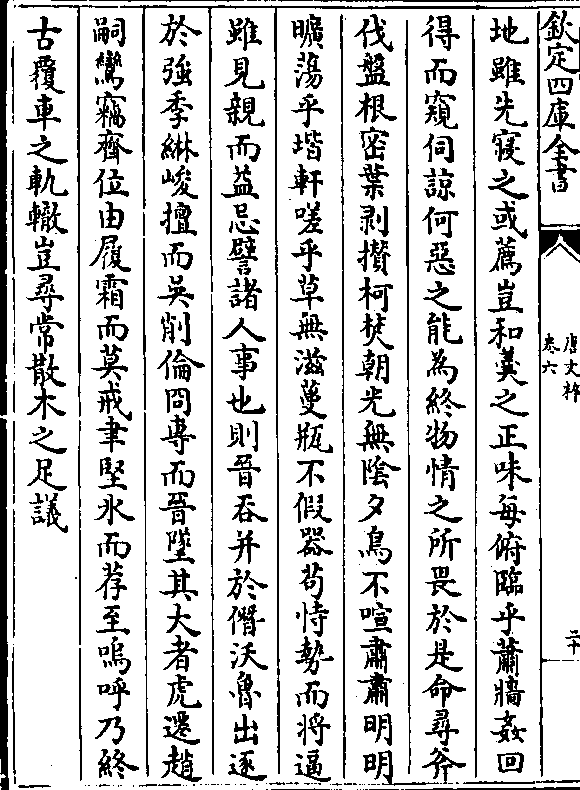 欽定四庫全書
唐文粹
卷六
二十
地雖先寢之或薦豈和羮之正味每俯臨乎蕭牆姦回
得而窺伺諒何惡之能為終物情之所畏於是命尋斧
伐盤根密葉剥攅柯焚朝光無隂夕鳥不喧肅肅明明
曠蕩乎堦軒嗟乎草無滋蔓瓶不假器苟恃勢而將逼
雖見親而益忌譬諸人事也則晉吞并於僭沃魯出逐
於強季緤峻擅而吳削倫冏専而晉墜其大者虎遷趙
嗣鸞竊齊位由履霜而莫戒聿堅氷而荐至嗚呼乃終
古覆車之軌轍豈尋常散木之足議